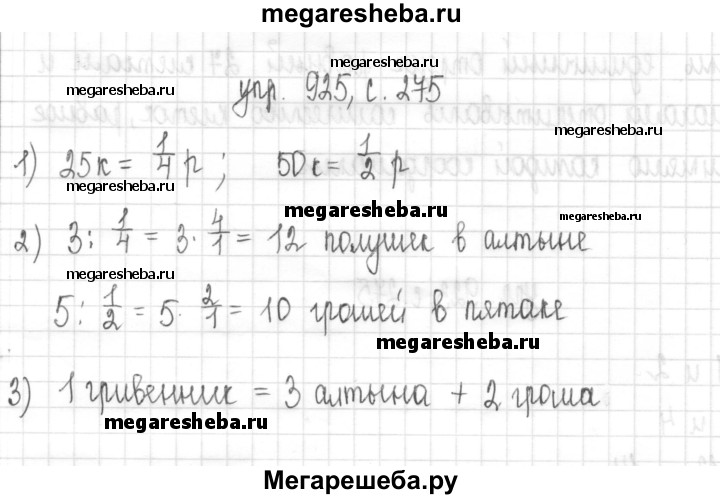 megaresheba.ru
megaresheba.ru
megaresheba.ru
упр. 925, с. 275
megaresheba.ru
1) 25к = 1/4 р ; 50к = 1/2 р
megaresheba.ru
megaresheba.ru
megaresheba.ru
2) 3 : 1/4 = 3 · 4/1 = 12 полушек в алтыне
megaresheba.ru
5 : 1/2 = 5 · 2/1 = 10 грошей в пятаке
megaresheba.ru
3) 1 гривенник = 3 алтына + 2 гроша
megaresheba.ru
Мегарешеба.ру